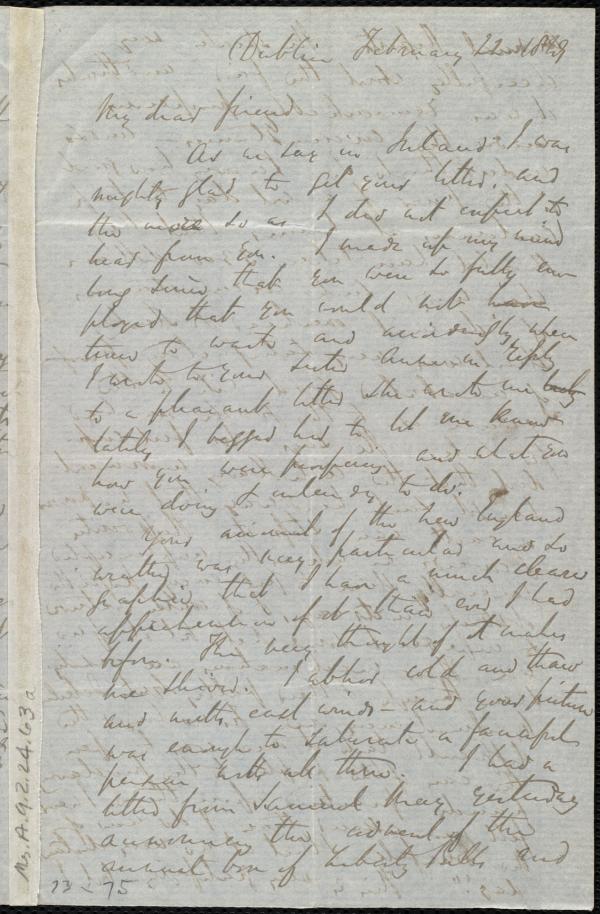 Dublin February 22nd 1849
My dear friend
As we say in Ireland I was
mighty glad to get your letter, and
the more so as I did not expect to
hear from you. I made up my mind
long since that you were so fully em
ployed that you would not have
time to waste and accordingly when
I wrote to your sister Anne in reply
to a pleasant letter she wrote me lately
lately I begged her to let me know
how you were prospering and what you
were doing & intending to do.
Your account of the New England
weather was very particular and so
graphic that I have a much clearer
apprehension of it than ever I had
before. The very thought of it makes
me shiver. I abhor cold and thaw
and with east winds – and your picture
was enough to saturate a fanciful
person with all three. I had a
letter from Samuel May yesterday
announcing the advent of the
annual box of Liberty Bells and
Ms. A.9.2.24.63a
13-75